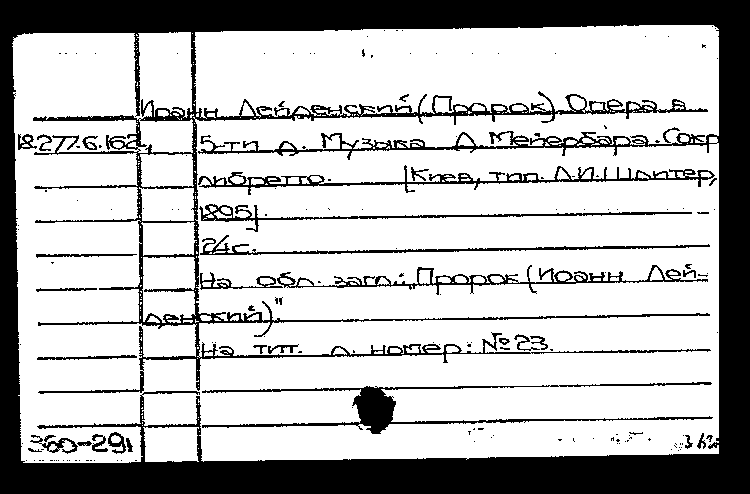 Иоанн Лейденский (Пророк). Опера в
18.277.6.162, 5-ти д. Музыка Д. Мейербера. Сокр
либретто. [Киев, тип. Л.И. Шлитер,
1895].
24с.
На обл. загл.: „Пророк (Иоанн Лей-
денский)."
На тит. л. номер: №23.
360-291